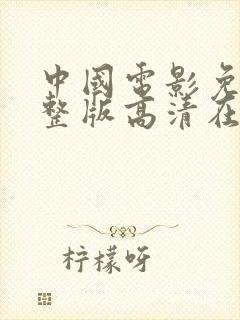 中國電影免
整版高清在
柠檬呀